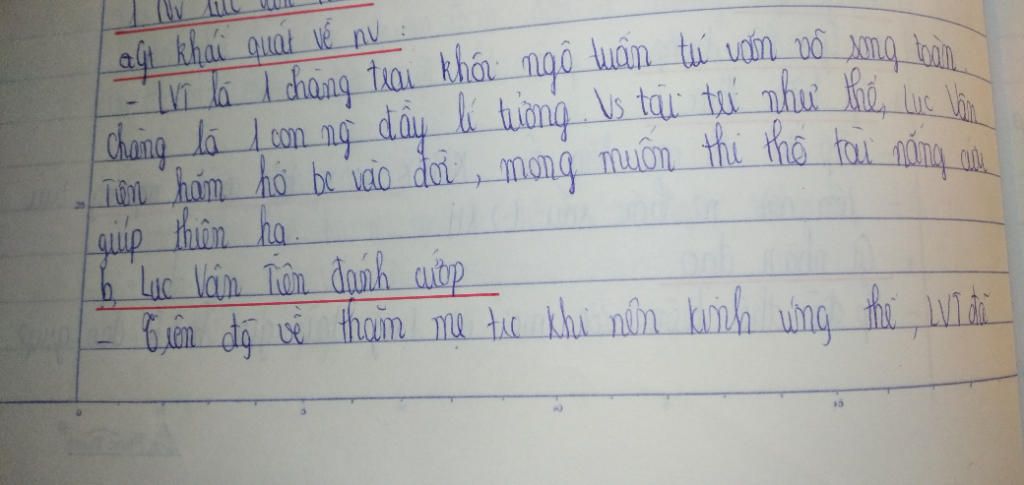 1 NV Lục Vân
a, Gt khái quát về nv :
- LVT là 1 chàng trai khôi ngô tuấn tú văn võ song toàn.
chàng là 1 con ng đầy lí tưởng. Vs tài trí như thế, Lục Vân
Tiên hăm hở bc vào đời, mong muốn thi thố tài năng cứu
giúp thiên hạ.
b, Lục Vân Tiên đánh cướp
- Trên đg về thăm mẹ trc khi nên kinh ứng thí, LVT đã
0 5 10 15